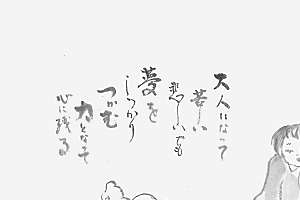 大人になって
苦しい
悲しいでも
夢を
しっかり
つかむ
力となって
心に残る